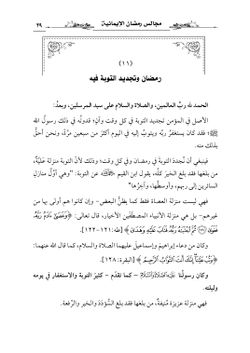 مجالس رمضان الإيمانية
٣٩
(١١)
رمضان وتجديد التوبة فيه
الحمد لله ربِّ العالمين، والصلاة والسلام على سيد المرسلين، وبعدُ:
الأصل في المؤمن تجديد التوبة في كل وقت وآنٍ؛ قدوتُه في ذلك رسولُ الله
ﷺ؛ فقد كان يستغفرُ ربَّه ويتوبُ إليه في اليوم أكثرَ من سبعين مرَّة، ونحن أحقُّ
بذلك منه.
فينبغي أن تُجدَّدَ التوبةُ في رمضان وفي كل وقت؛ وذلك لأنَّ التوبة منزلةٌ عَلِيَّةٌ،
من بلغها فقد بلغ الخيرَ كلَّه، يقول ابن القيم عن التوبة: "وهي أوَّل منازلِ
السائرين إلى ربهم، وأوسطُها، وآخِرُها"
فهي ليست منزلة العصاة فقط كما يظنُّ البعض – وإن كانوا هم أولى بها من
غيرهم– بل هي منزلة الأنبياء المصطَفَين الأخيار، قال تعالى: ﴿وَعَصَىٰٓ ءَادَمُ رَبَّهُۥ
فَغَوَىٰ (١٢١) ثُمَّ ٱجْتَبَٰهُ رَبُّهُۥ فَتَابَ عَلَيْهِ وَهَدَىٰ﴾ [طه: ١٢١-١٢٢].
وكان من دعاء إبراهيم وإسماعيلَ عليهما الصلاة والسلام، كما قال الله عنهما:
﴿وَتُبْ عَلَيْنَآ إِنَّكَ أَنتَ ٱلتَّوَّابُ ٱلرَّحِيمُ﴾ [البقرة: ١٢٨].
وكان رسولُنا – كما تقدَّم – كثيرَ التوبة والاستغفار في يومه
وليلته.
فهي منزلة عزيزة مُنيفةٌ، من بلغها فقد بلغ السُّؤدَدَ والخير والرِّفعة.